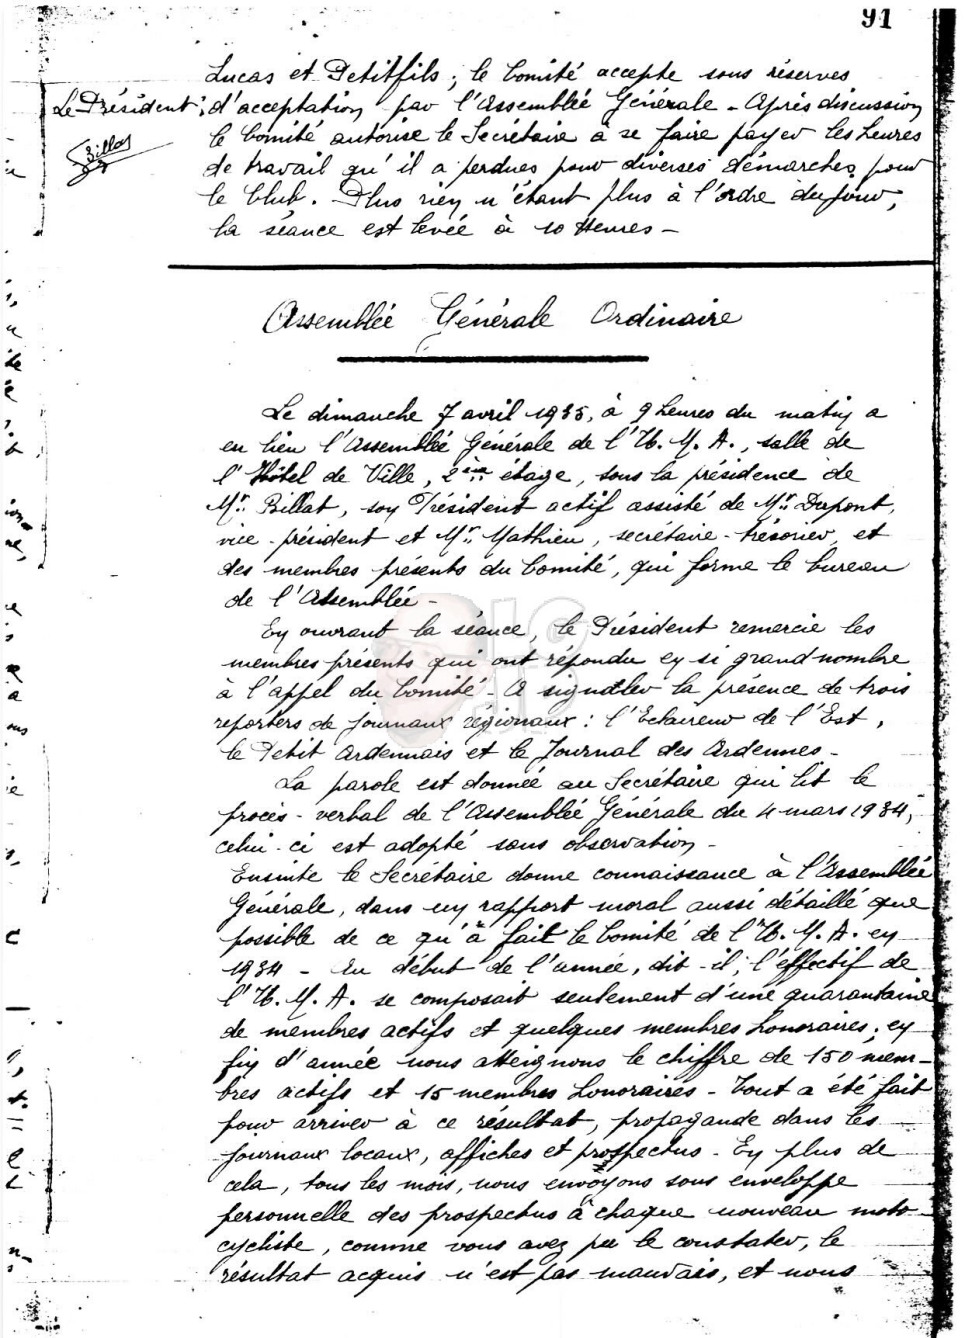 91
Lucas et Petitfils ; le Comité accepte sous réserves
Le Président ; d'acceptation par l'Assemblée Générale - Après discussion
le Comité autorise le Secrétaire à se faire payer les heures
Billat
de travail qu'il a perdues pour diverses démarches pour
le Club. Plus rien n'étant plus à l'ordre du jour,
la séance est levée à 10 Heures -
Assemblée Générale Ordinaire
Le dimanche 7 avril 1935, à 9 heures du matin a
eu lieu l'Assemblée Générale de l'U. M. A., salle de
l'Hôtel de Ville, 2ème étage, sous la présidence de
Mr. Billat, son Président actif assisté de Mr. Dupont,
vice-président et Mr. Mathieu, secrétaire-trésorier, et
des membres présents du Comité, qui forme le bureau
de l'Assemblée -
En ouvrant la séance, le Président remercie les
membres présents qui ont répondu en si grand nombre
à l'appel du Comité - A signaler la présence de trois
reporters de journaux régionaux : l'Eclaireur de l'Est,
le Petit Ardennais et le Journal des Ardennes -
La parole est donnée au Secrétaire qui lit le
procès-verbal de l'Assemblée Générale du 4 mars 1934,
celui-ci est adopté sans observation -
Ensuite le Secrétaire donne connaissance à l'Assemblée
Générale, dans un rapport moral aussi détaillé que
possible de ce qu'a fait le Comité de l'U. M. A. en
1934 - Au début de l'année, dit-il, l'effectif de
l'U. M. A. se composait seulement d'une quarantaine
de membres actifs et quelques membres honoraires ; en
fin d'année nous atteignons le chiffre de 150 mem-
bres actifs et 15 membres honoraires - Tout a été fait
pour arriver à ce résultat, propagande dans les
journaux locaux, affiches et prospectus - En plus de
cela, tous les mois, nous envoyons sous enveloppe
personnelle des prospectus à chaque nouveau moto-
cycliste, comme vous avez pu le constater, le
résultat acquis n'est pas mauvais, et nous